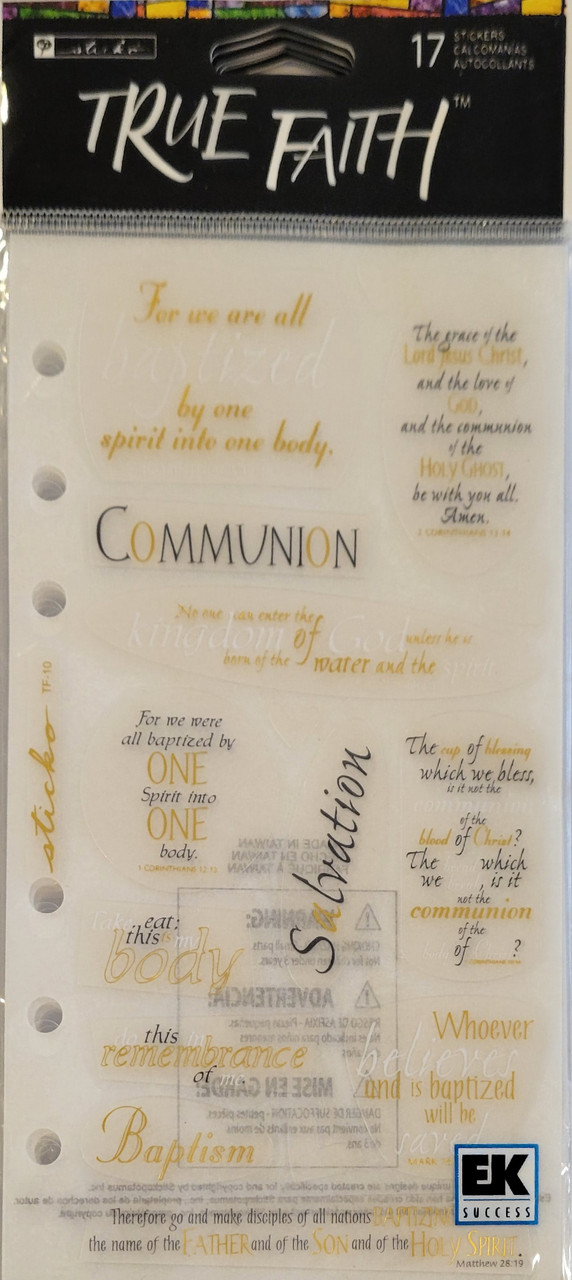 sticko
17
STICKERS
CALCOMANIAS
AUTOCOLLANTS
TRUE FAITH™
For we are all
baptized
by one
spirit into one body.
The grace of the
Lord Jesus Christ,
and the love of
God,
and the communion
of the
Holy Ghost,
be with you all.
Amen.
2 CORINTHIANS 13:14
COMMUNION
No one can enter the
kingdom of God unless he is
born of the water and the spirit.
sticko TF-10
For we were
all baptized by
ONE
Spirit into
ONE
body.
1 CORINTHIANS 12:13
Salvation
The cup of blessing
which we bless,
is it not the
communion
of the
blood of Christ?
The which
we , is it
not the
communion
of the
of ?
MADE IN TAIWAN
HECHO EN TAIWAN
FABRIQUÉ À TAIWAN
WARNING:
Not for children under 3 years.
ADVERTENCIA:
MISE EN GARDE:
DANGER DE SUFFOCATION - petites pièces.
Take eat;
this is my
body
do this in
remembrance
of me.
Baptism
Whoever
believes
and is baptized
will be
saved
MARK
EK
SUCCESS
Therefore go and make disciples of all nations BAPTIZING
the name of the FATHER and of the SON and of the HOLY SPIRIT.
Matthew 28:19